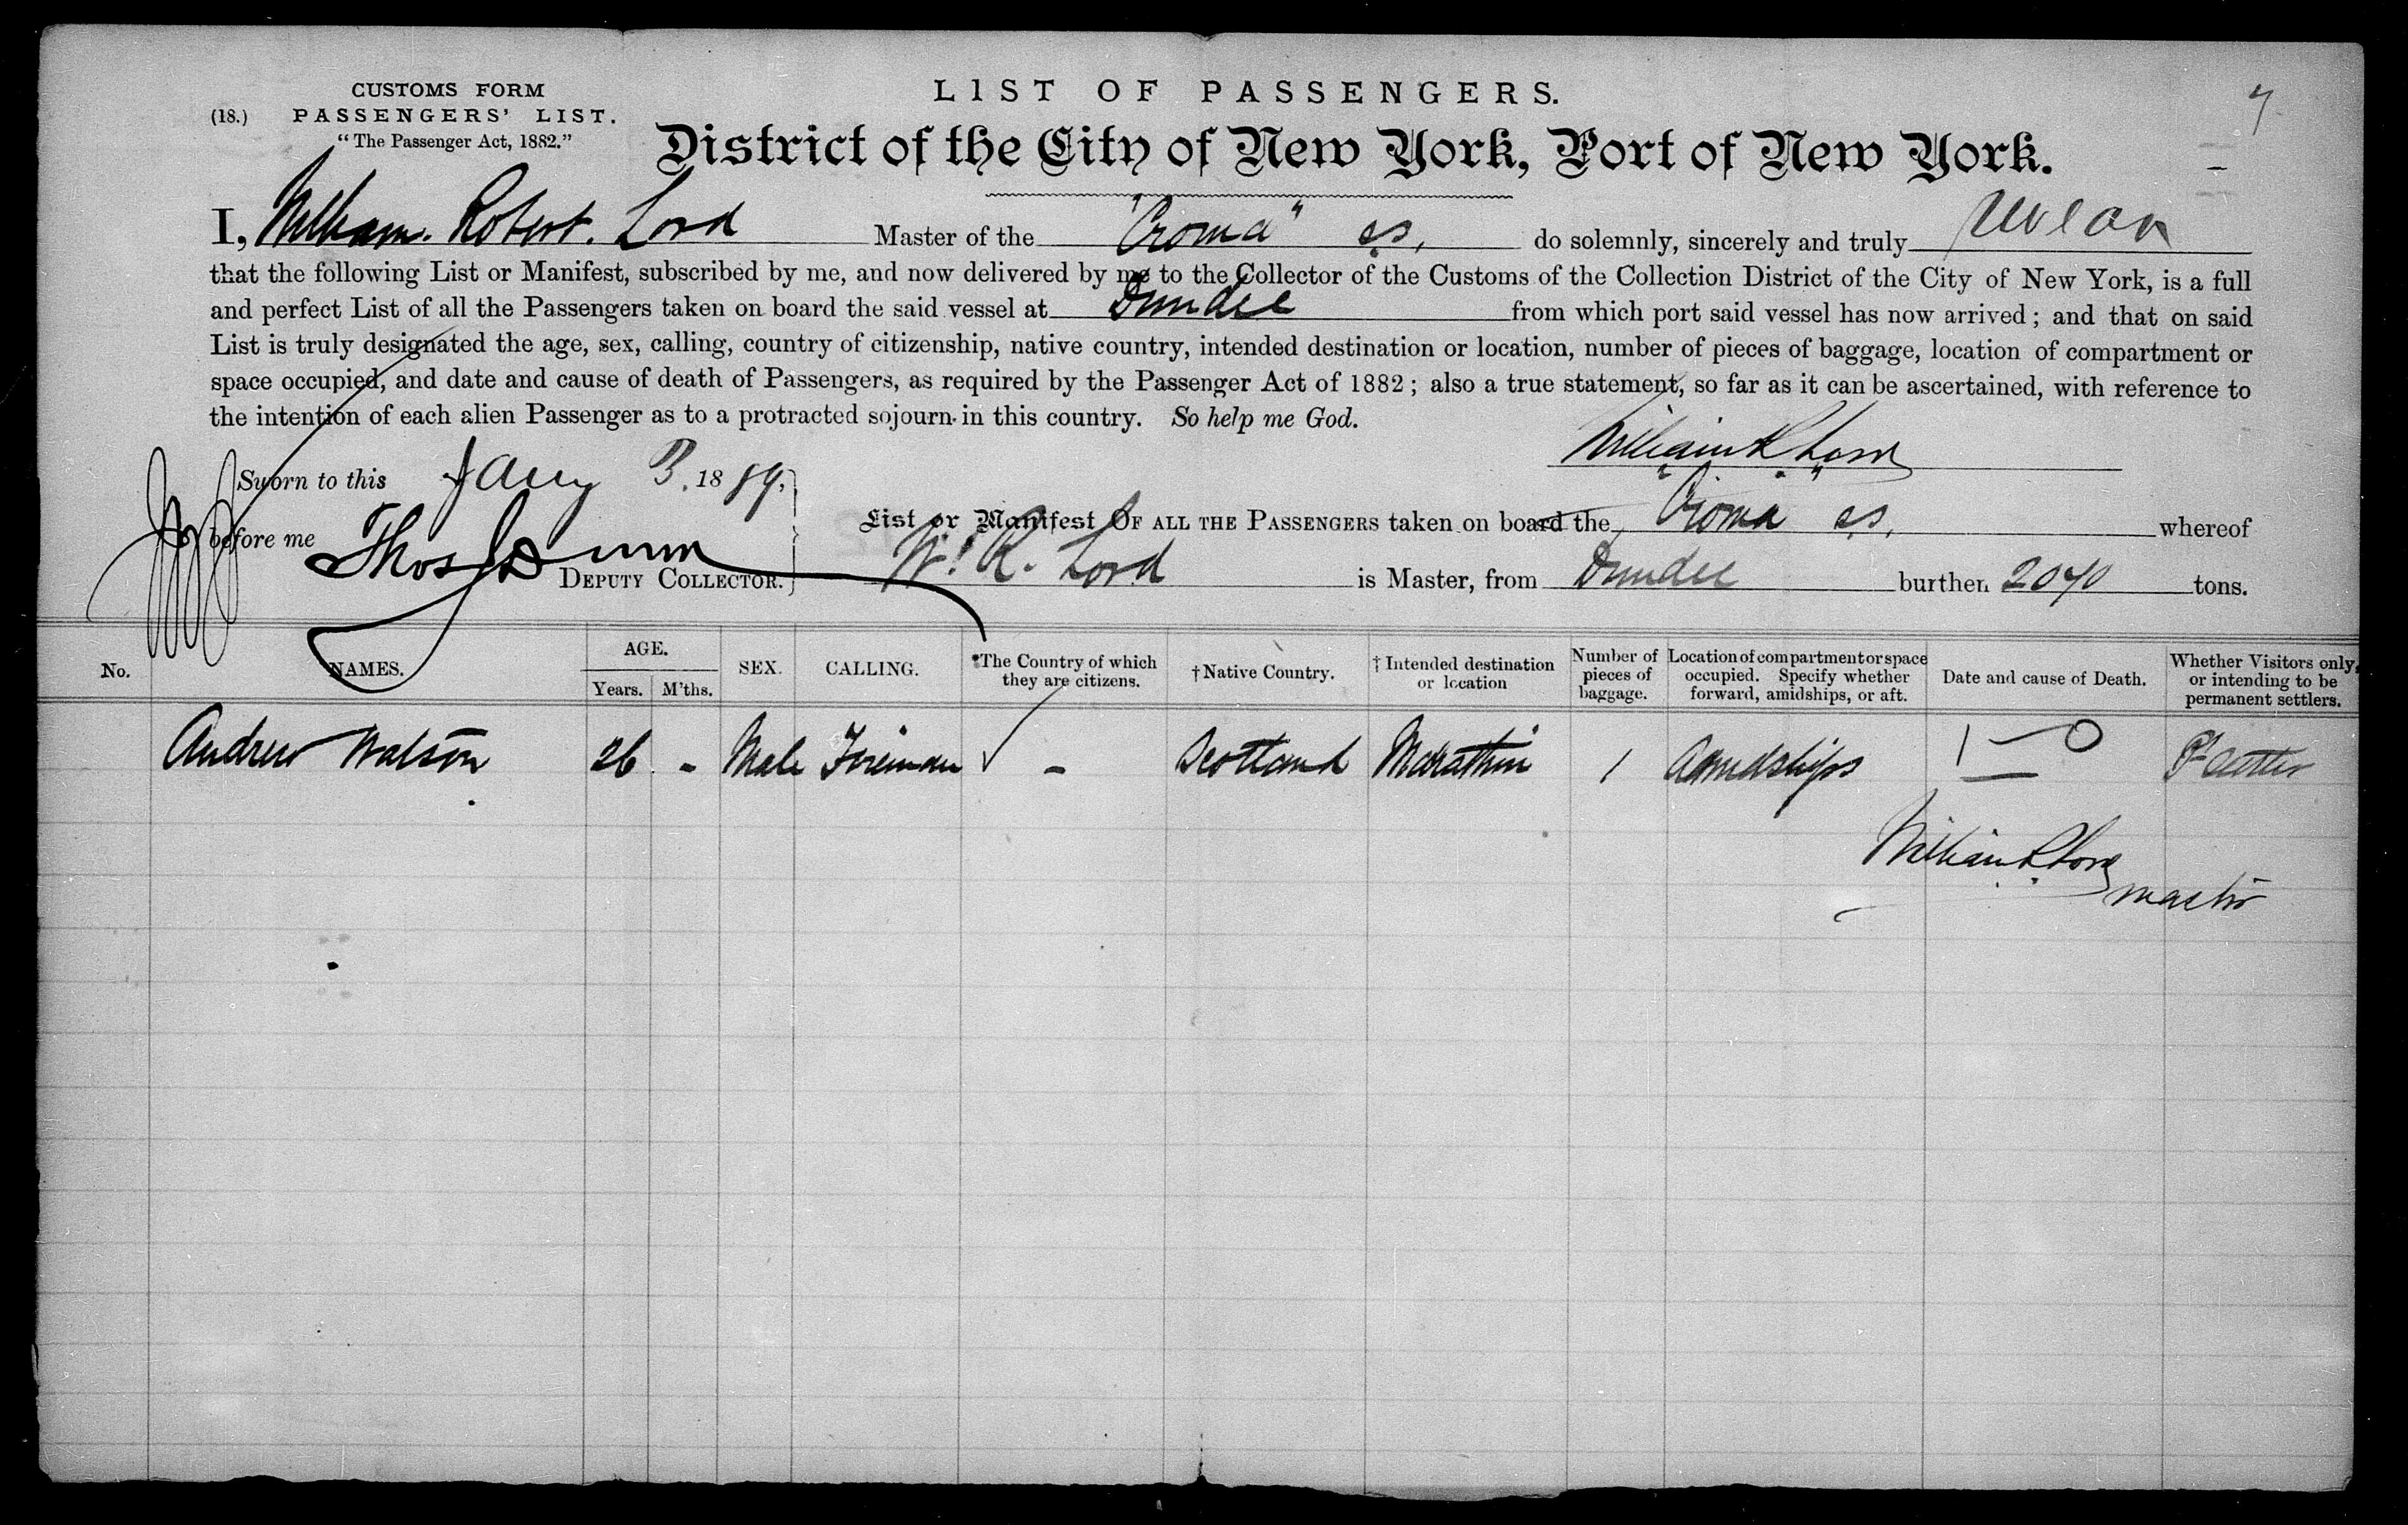 CUSTOMS FORM
(18.) PASSENGERS' LIST.
"The Passenger Act, 1882."
LIST OF PASSENGERS.
7
District of the City of New York, Port of New York.
I, William Robert Lord Master of the "Croma" ss, do solemnly, sincerely and truly swear
that the following List or Manifest, subscribed by me, and now delivered by me to the Collector of the Customs of the Collection District of the City of New York, is a full
and perfect List of all the Passengers taken on board the said vessel at Dundee from which port said vessel has now arrived; and that on said
List is truly designated the age, sex, calling, country of citizenship, native country, intended destination or location, number of pieces of baggage, location of compartment or
space occupied, and date and cause of death of Passengers, as required by the Passenger Act of 1882; also a true statement, so far as it can be ascertained, with reference to
the intention of each alien Passenger as to a protracted sojourn in this country. So help me God.
William R Lord
Sworn to this Jany 3. 1889,
before me Thos Dunn
DEPUTY COLLECTOR.
List or Manifest OF ALL THE PASSENGERS taken on board the "Croma" ss, whereof
W. R. Lord is Master, from Dundee burthen 2040 tons.
No. NAMES. AGE. Years. M'ths. SEX. CALLING. *The Country of which they are citizens. †Native Country. †Intended destination or location Number of pieces of baggage. Location of compartment or space occupied. Specify whether forward, amidships, or aft. Date and cause of Death. Whether Visitors only, or intending to be permanent settlers.
Andrew Watson 26 - Male Fireman - Scotland 1 Amidships P. Settler
William R Lord
master